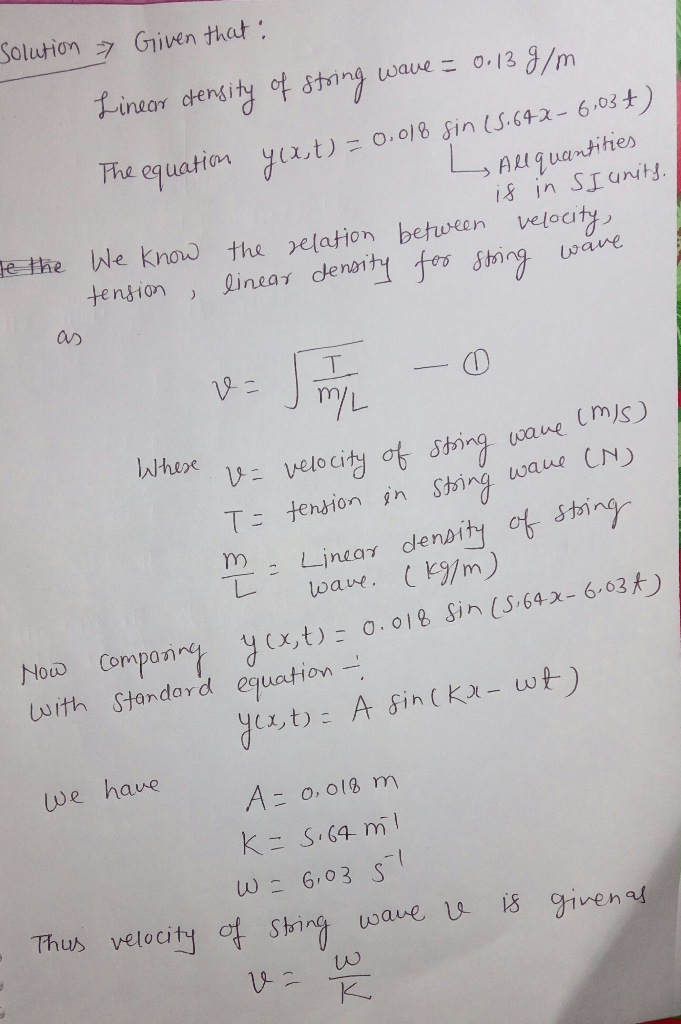 Solution ⇒ Given that :
Linear density of string wave = 0.13 g/m
The equation y(x,t) = 0.018 sin (5.64x - 6.03t)
↳ All quantities
is in SI units.
We know the relation between velocity,
tension, linear density for string wave
as
v = √(T / (m/L)) — ①
Where v = velocity of string wave (m/s)
T = tension in string wave (N)
m/L = Linear density of string
wave. (kg/m)
Now comparing y(x,t) = 0.018 sin (5.64x - 6.03t)
with standard equation :-
y(x,t) = A sin (Kx - wt)
we have A = 0.018 m
K = 5.64 m⁻¹
w = 6.03 s⁻¹
Thus velocity of string wave v is given as
v = w/K